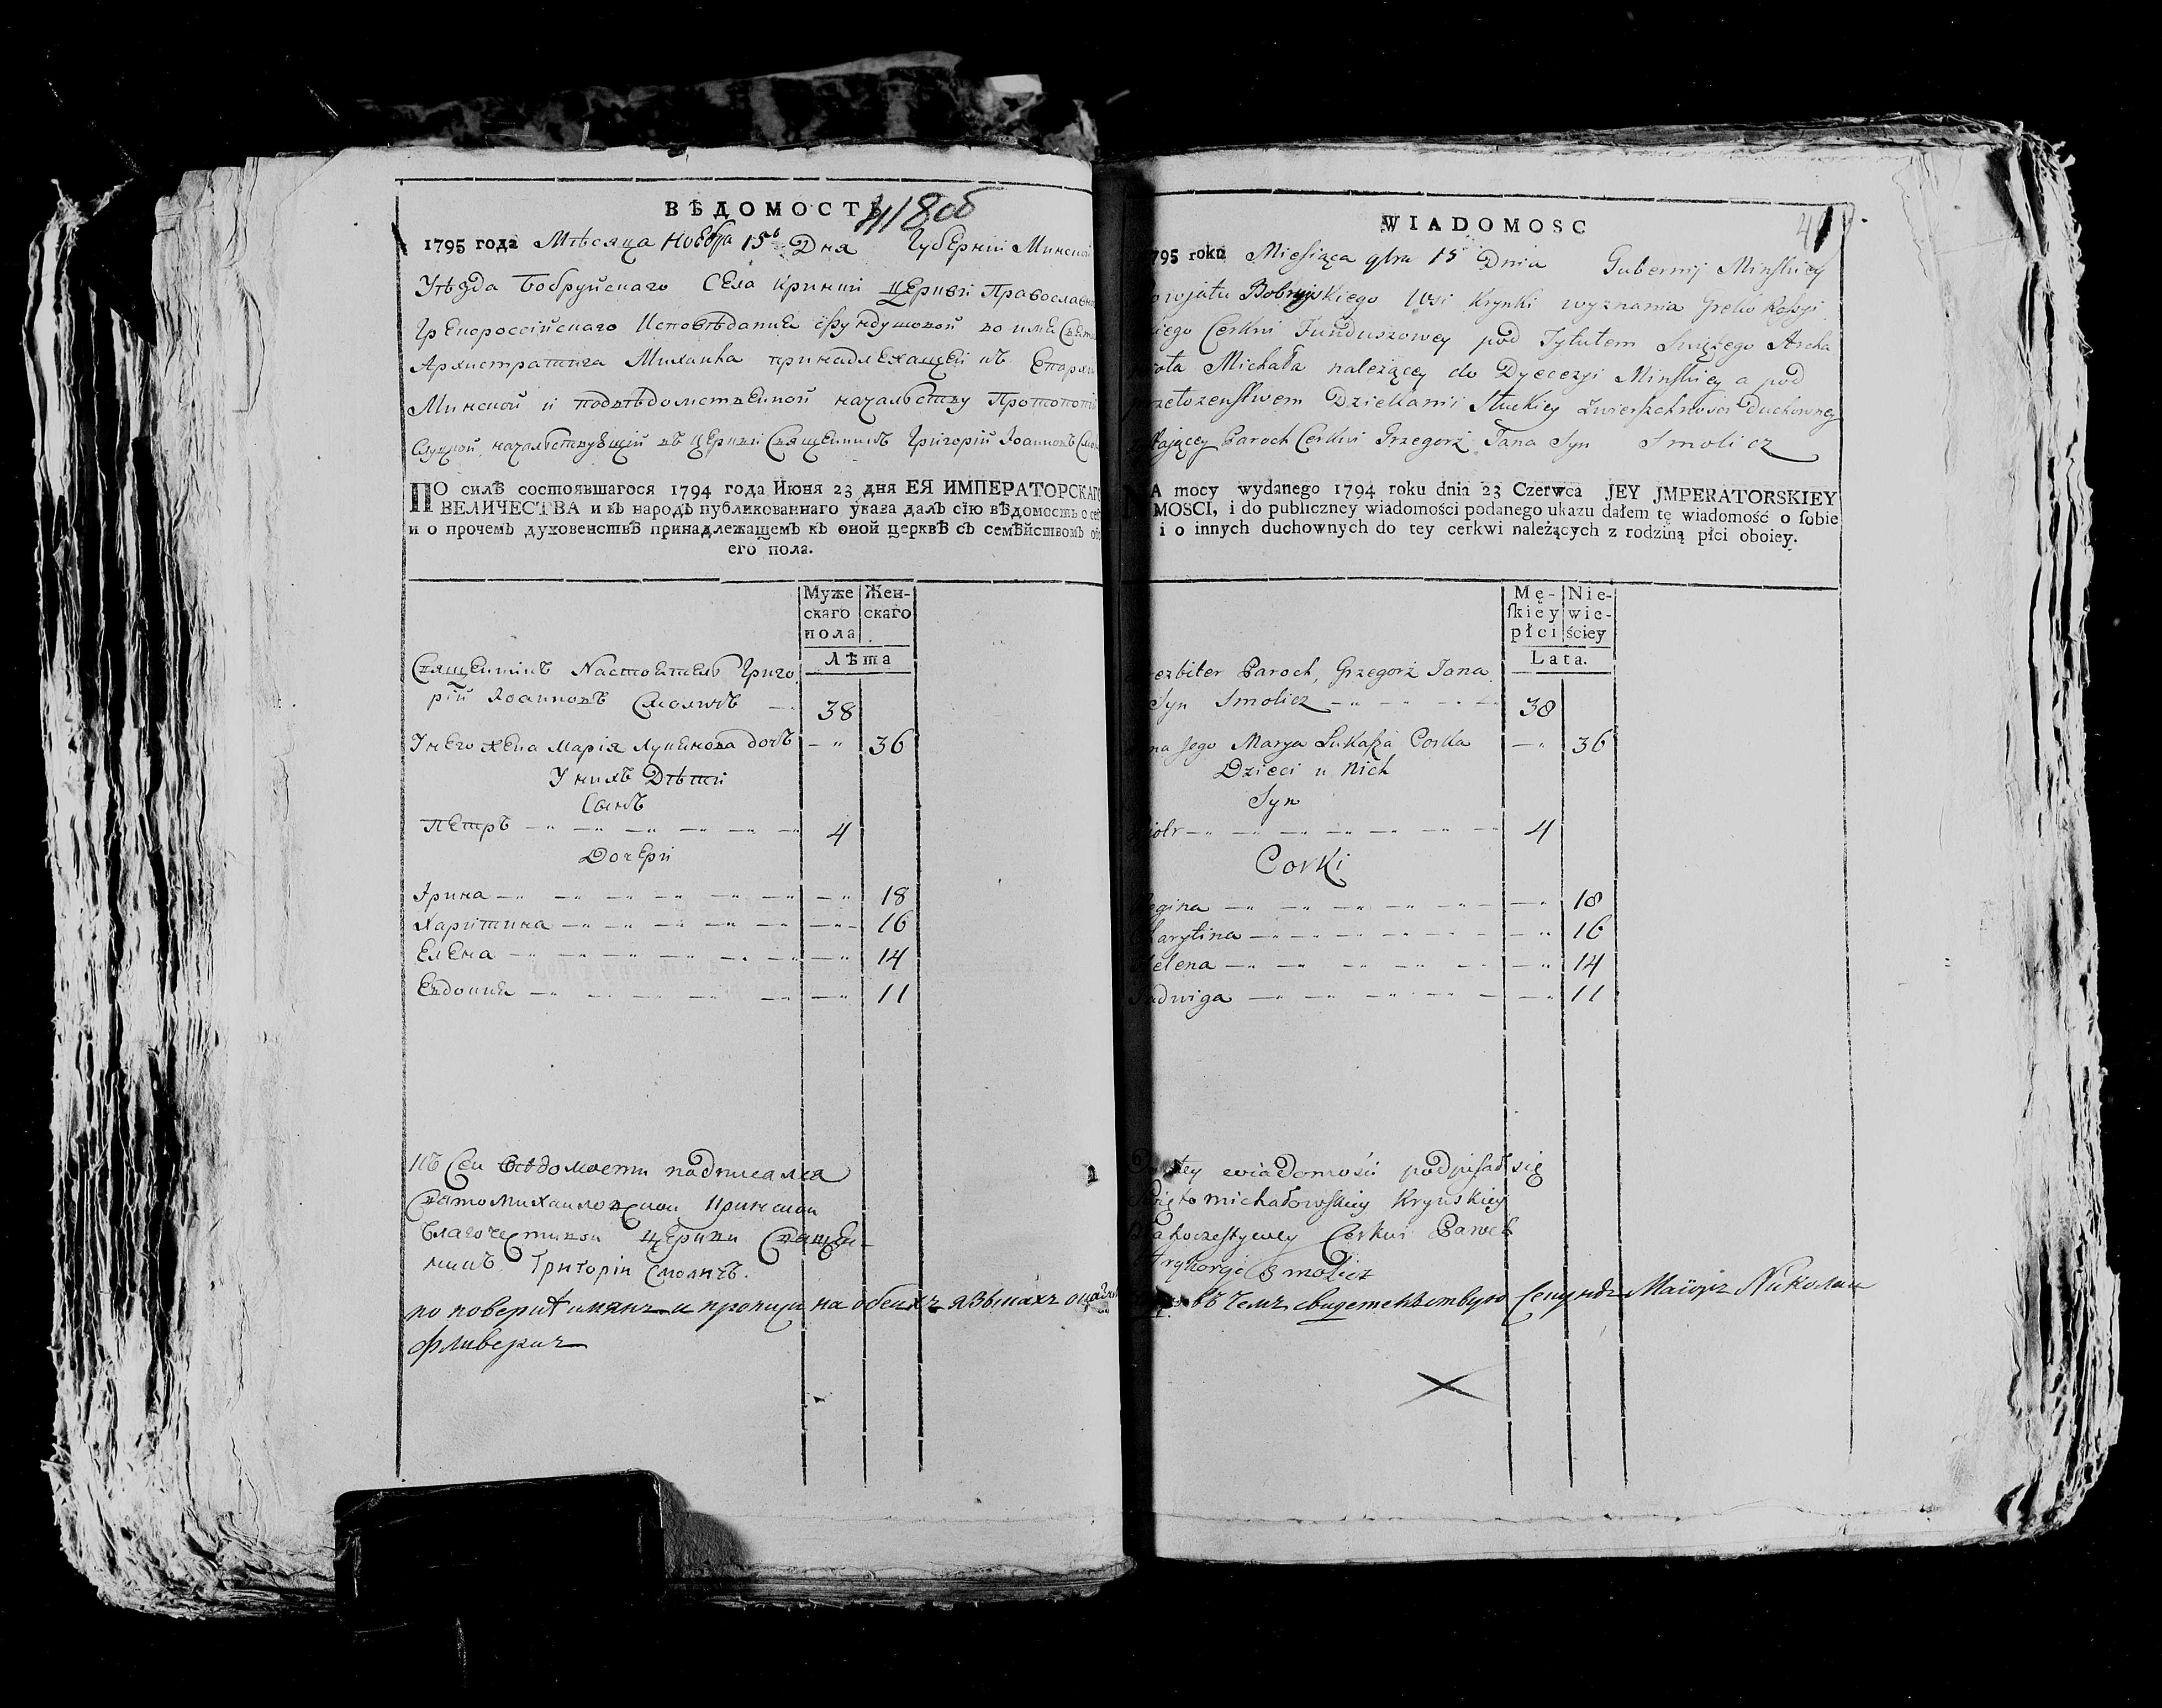 ВѢДОМОСТЬ
418об
1795 года Мѣсяца Ноебра 15го Дня Губерніи Минской
Уѣзда Бобруйскаго Села Кринки Церкви Православно
Грекороссійскаго Исповѣданія фундушовой во имя Свято
Архистратига Михаила принадлежащей къ Епархіи
Минской и подвѣдомственной начальству Протопопіи
Слуцкой, началствующій въ Церкви Священникъ Григорій Іоанновъ Смо
ПО силѣ состоявшагося 1794 года Июня 23 дня ЕЯ ИМПЕРАТОРСКАГО
ВЕЛИЧЕСТВА и въ народъ публикованнаго указа далъ сїю вѣдомость о себѣ
и о прочемъ духовенствѣ принадлежащемъ къ оной церквѣ съ семѣйствомъ обо
его пола.
Муже
скаго
пола
Жен-
скаго
Лѣта
Священникъ Настоятель Григо
рій Іоанновъ Смоличъ 38
У него жена Марія Лукинова дочь 36
У нихъ Дѣти
Сынъ
Петръ 4
Дочери
Ірина 18
Харитина 16
Елена 14
Евдокия 11
Къ сеи вѣдомости подписался
Святомихаиловской Кринскои
благочестивои церкви Священ-
никъ Григории Смоличъ.
по поверке имянъ и прописи на обеихъ языкахъ
Фливеркъ
WIADOMOSC
41
795 roku Miesiąca 9bra 15 Dnia Gubernij Minskiey
owiatu Bobryjskiego Wsi Krynki wyznania Greko Rossyi
kiego Cerkwi Funduszowey pod Tytułem Swiętego Archa
ioła Michała należącey do Dyecezyi Minskiey a pod
rzełożenstwem Dziekanii Słuckiey Zwierzchnosci Duchowney
Paroch Cerkwi Grzegorz Jana Syn Smolicz
NA mocy wydanego 1794 roku dnia 23 Czerwca JEY JMPERATORSKIEY
MOSCI, i do publiczney wiadomości podanego ukazu dałem tę wiadomość o sobie
i o innych duchownych do tey cerkwi należących z rodziną płci oboiey.
Mę-
skiey
płci
Nie-
wie-
ściey
Lata.
rezbiter Paroch, Grzegorz Jana
Syn Smolicz 38
na Jego Marya Łukasza Corka 36
Dzieci u Nich
Syn
Piotr 4
Corki
Regina 18
Charytina 16
Helena 14
Jadwiga 11
Do tey wiadomości podpisał się
Swięto michałowskiey Kryńskiey
Błahoczestywey Cerkwi Paroch
Hryhorgi Smolicz
въ чемъ свидетельствую Секундъ Маіоръ Николаи